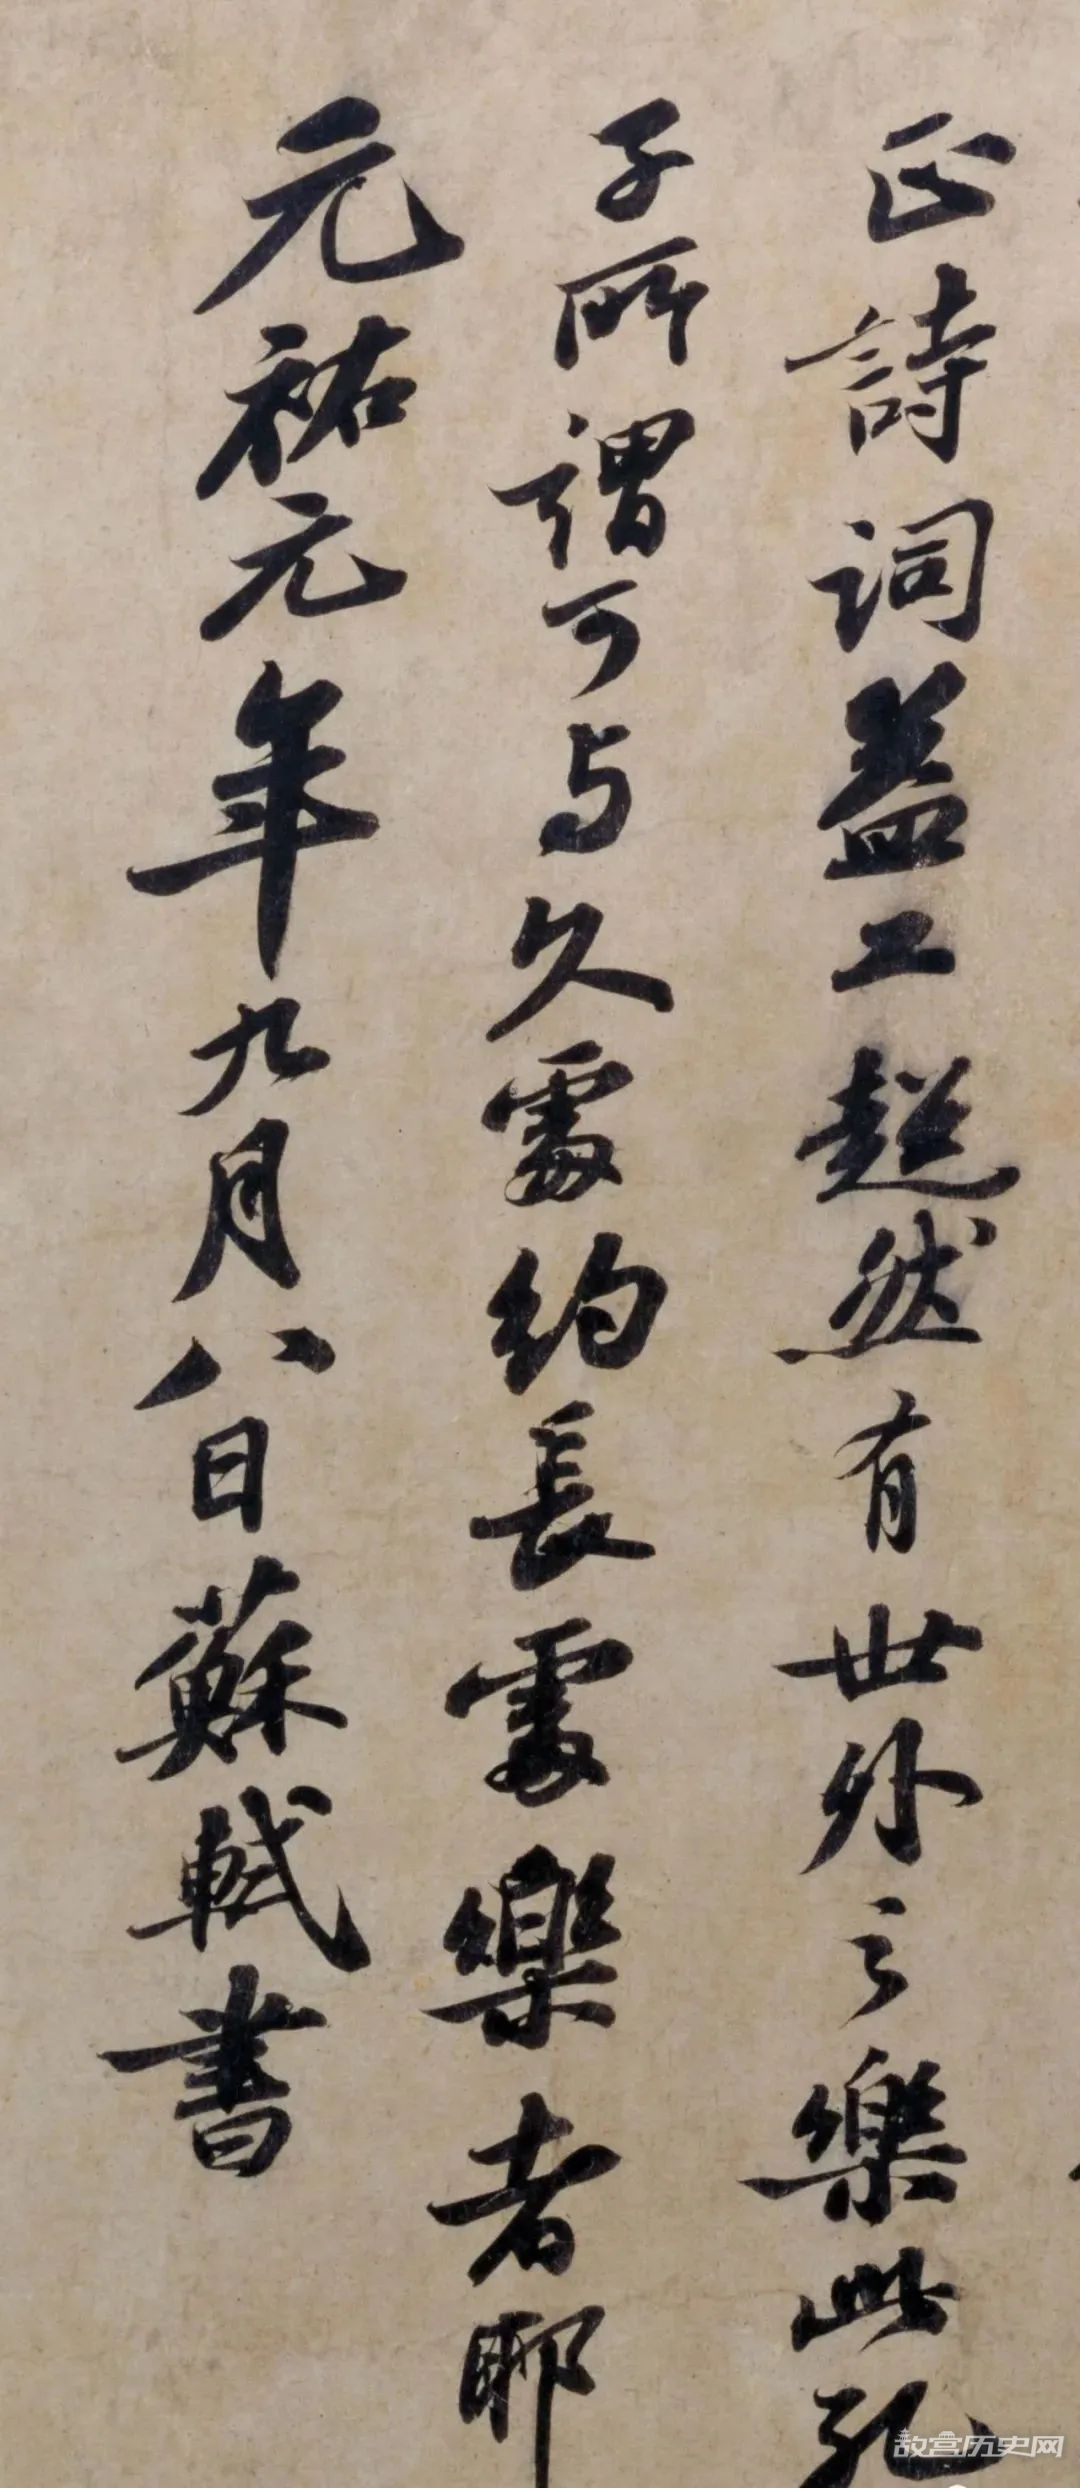 正詩詞益工超然有世外之樂此孔
子所謂可与久處約長處樂者耶
元祐元年九月八日蘇軾書
故宫历史网